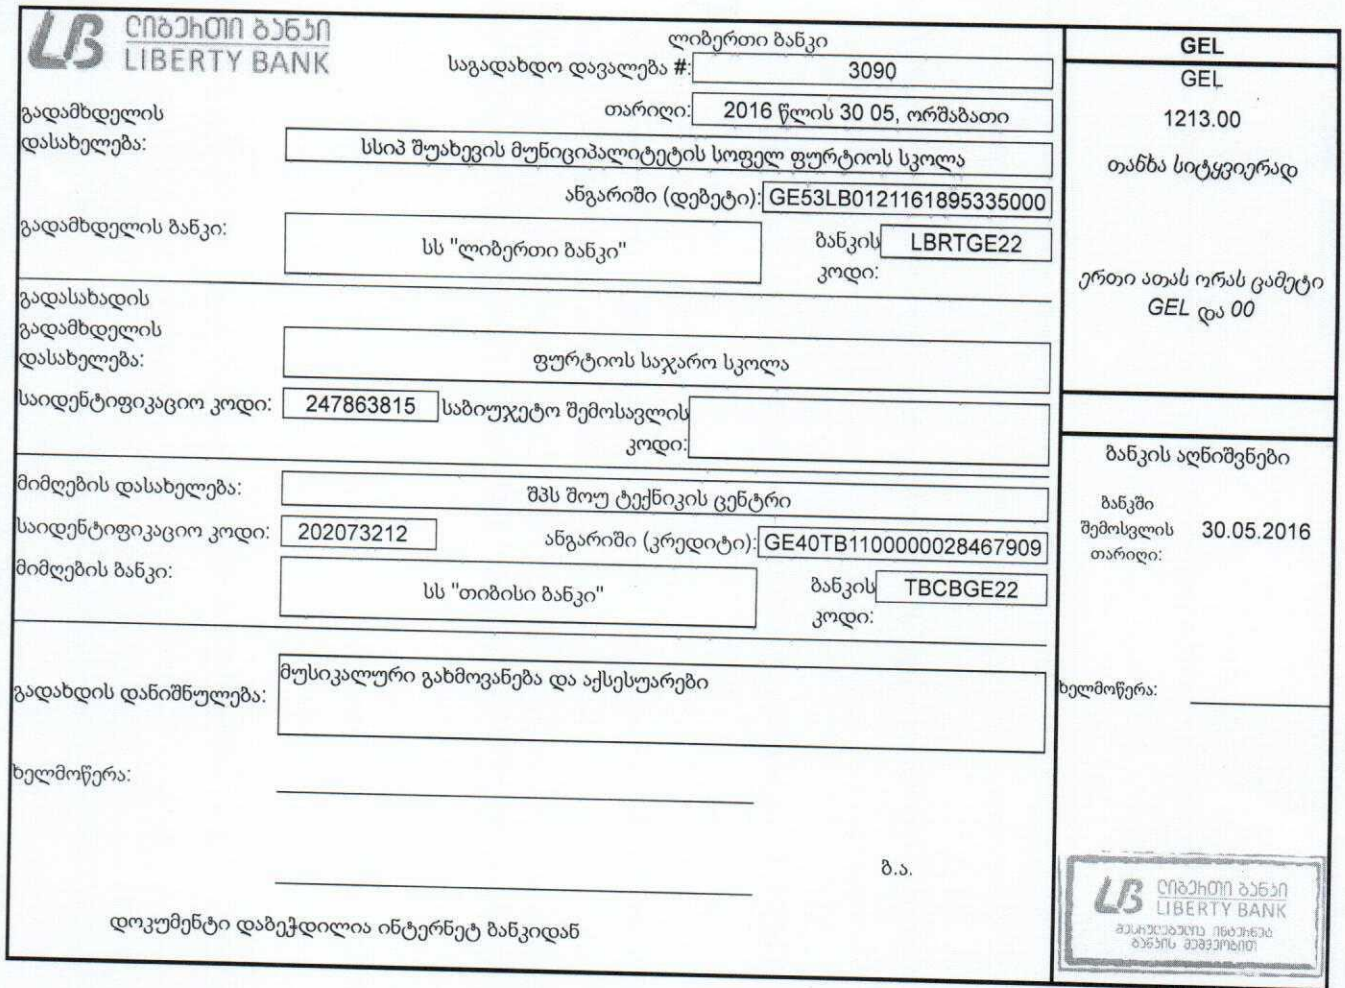 ლიბერთი ბანკი
LIBERTY BANK
ლიბერთი ბანკი
საგადახდო დავალება #: 3090
თარიღი: 2016 წლის 30 05, ორშაბათი
გადამხდელის
დასახელება: სსიპ შუახევის მუნიციპალიტეტის სოფელ ფურტიოს სკოლა
ანგარიში (დებეტი): GE53LB0121161895335000
გადამხდელის ბანკი: სს "ლიბერთი ბანკი" ბანკის კოდი: LBRTGE22
გადასახადის
გადამხდელის
დასახელება: ფურტიოს საჯარო სკოლა
საიდენტიფიკაციო კოდი: 247863815 საბიუჯეტო შემოსავლის
კოდი:
მიმღების დასახელება: შპს შოუ ტექნიკის ცენტრი
საიდენტიფიკაციო კოდი: 202073212 ანგარიში (კრედიტი): GE40TB1100000028467909
მიმღების ბანკი: სს "თიბისი ბანკი" ბანკის კოდი: TBCBGE22
გადახდის დანიშნულება: მუსიკალური გახმოვანება და აქსესუარები
ხელმოწერა:
ბ.ა.
დოკუმენტი დაბეჭდილია ინტერნეტ ბანკიდან
GEL
GEL
1213.00
თანხა სიტყვიერად
ერთი ათას ორას ცამეტი
GEL და 00
ბანკის აღნიშვნები
ბანკში
შემოსვლის 30.05.2016
თარიღი:
ხელმოწერა:
ლიბერთი ბანკი
LIBERTY BANK
შესრულებულია ინტერნეტ
ბანკის მეშვეობით